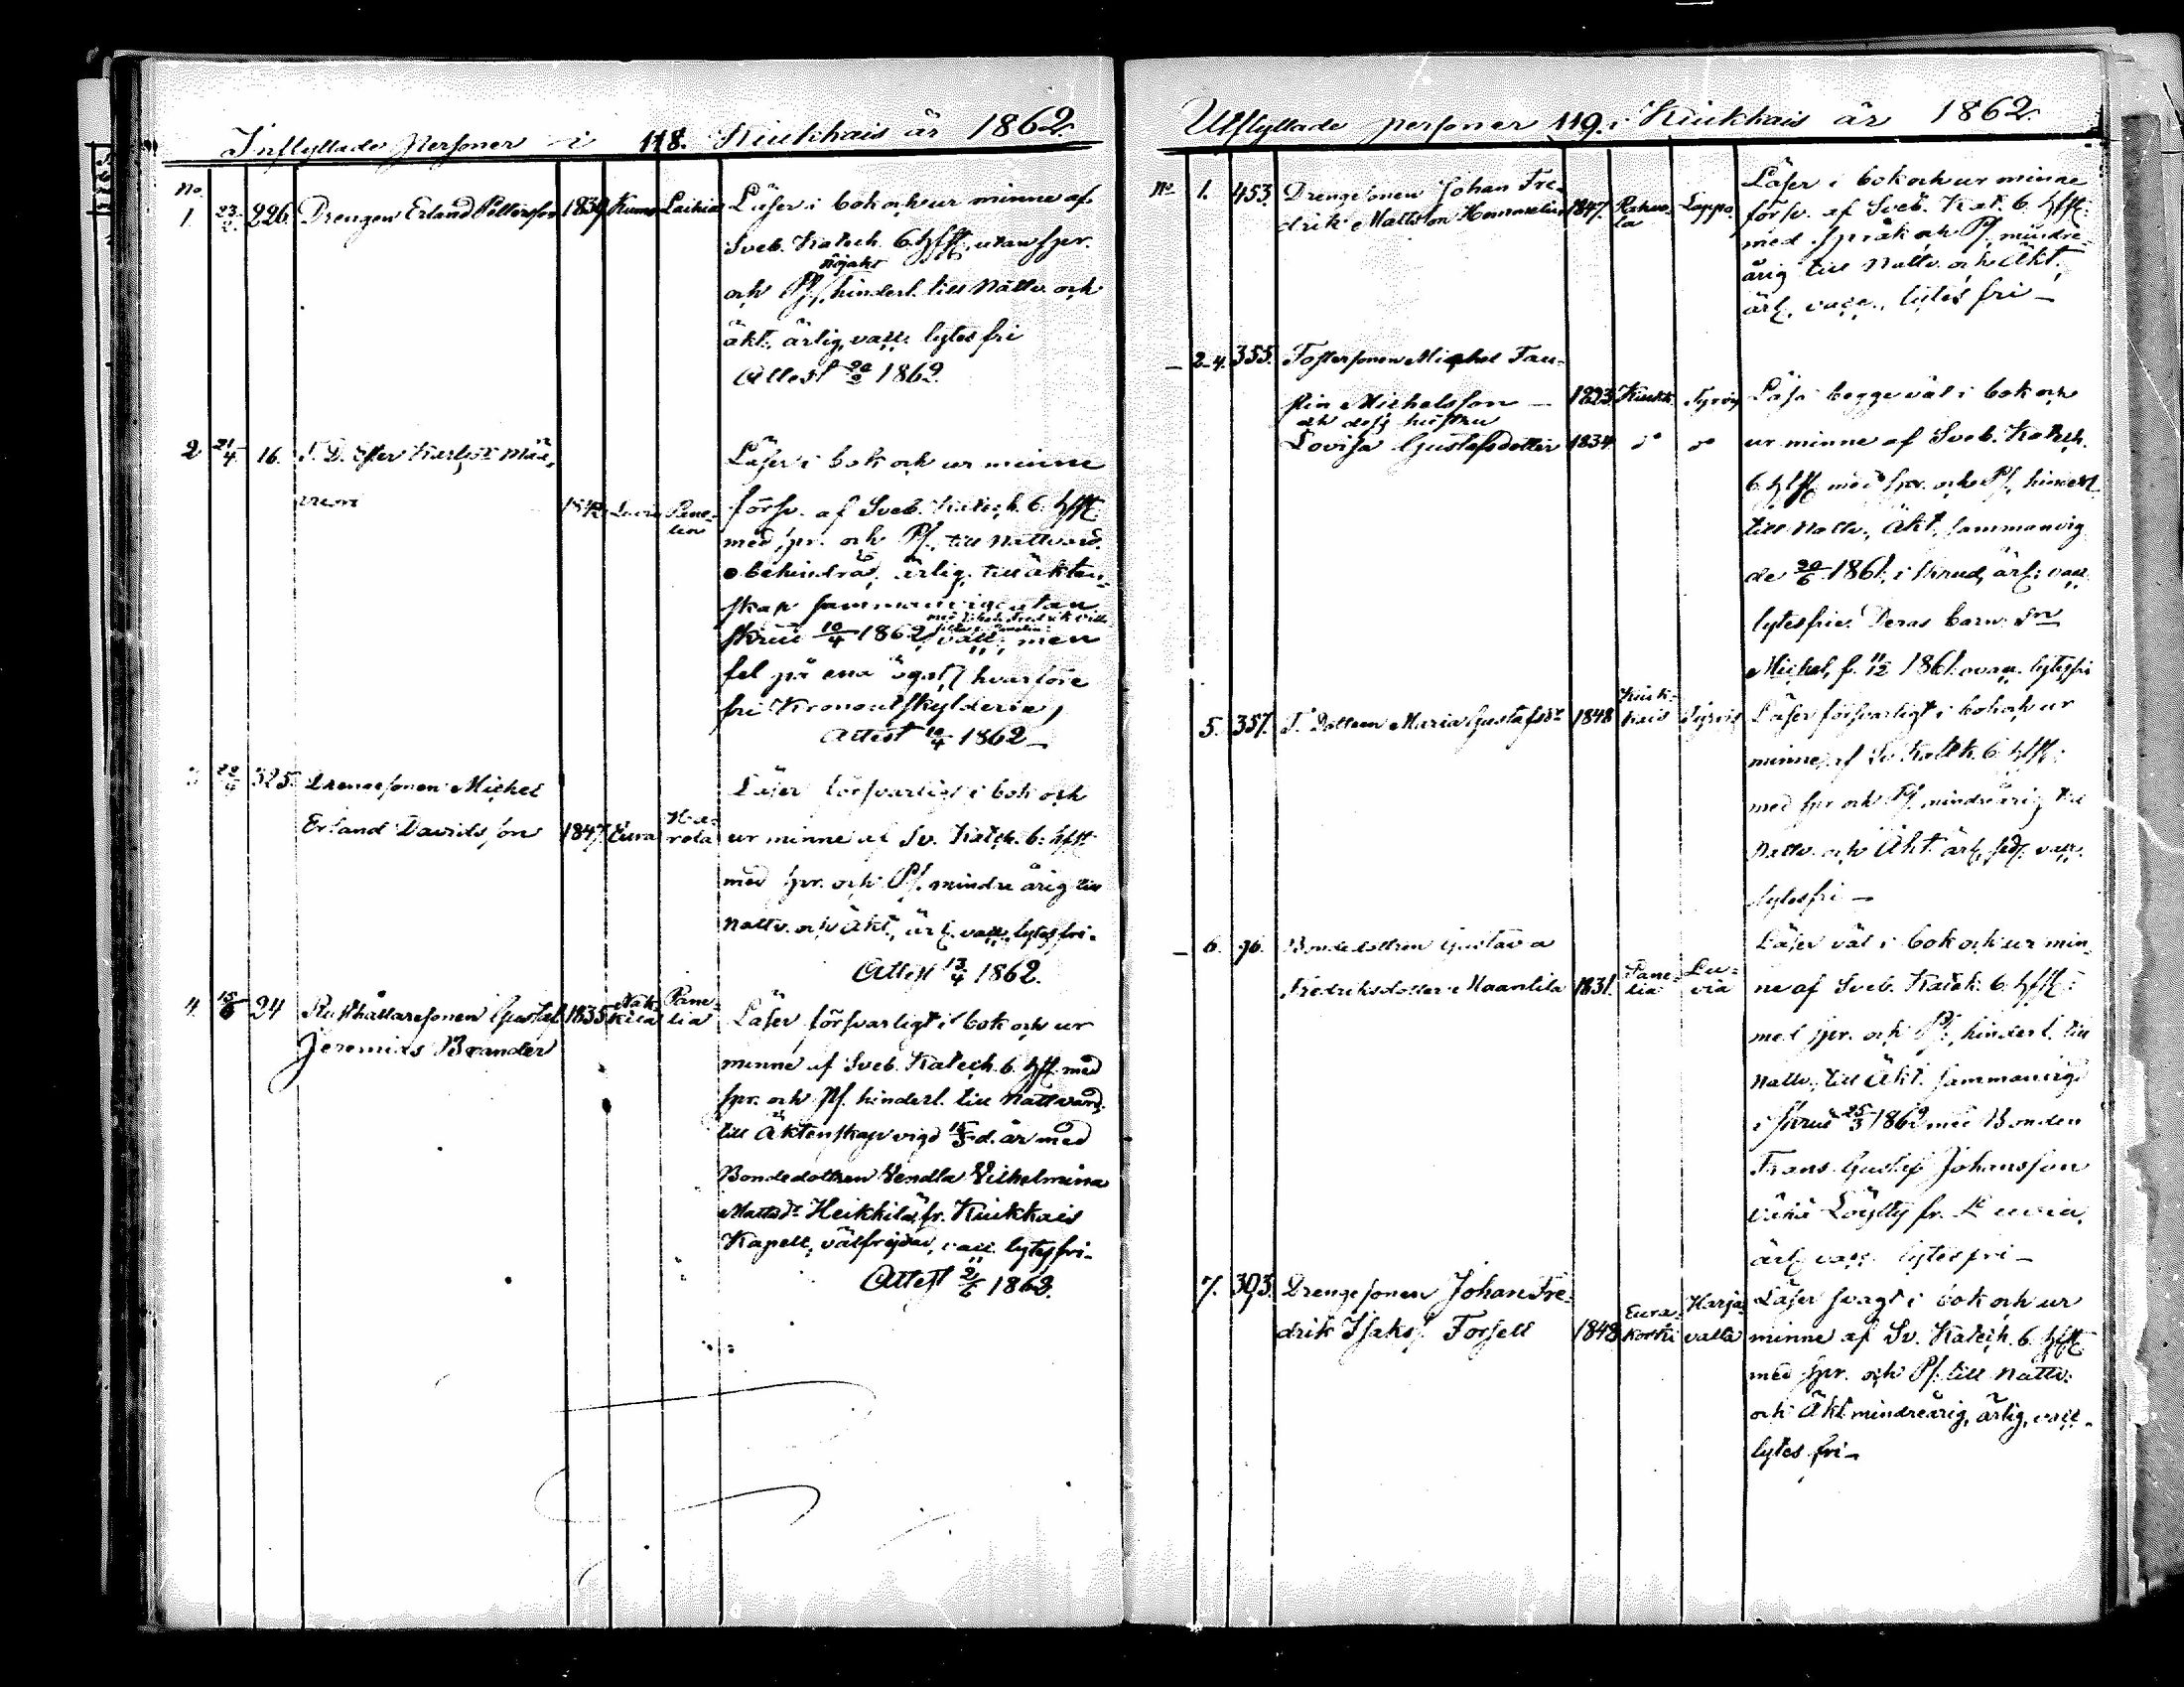 Inflyttade Personer i 118. Kiukhais år 1862.
No
1 23/2 226. Drengen Erland Pettersson 1839 Kumo Laihia Läser i bok och ur minne af
Sveb. Katech. 6 hfst. utan spr.
nöjakt
och Ps, hinderl. till Nattv. och
äkt., ärlig, vacc. lytesfri
Attest 20/2 1862.
2 21/4 16. T. D. Ester Karlsdr Mäe
1842 Luvia Pane-
lia
Läser i bok och ur minne
försv. af Sveb. Katech. 6. hfst.
med spr. och Ps., till Nattvard.
obehindrad, ärlig, till äkten-
skap sammanvigd utan
skrud 10/4 1862, vacc., men
fel på ena ögat (hvarföre
fri Kronoutskylderna)
Attest 10/4 1862
3 325. Drengsonen Michel
Erland Davidsson 1847. Eura Ha-
rola
Läser försvarligt i bok och
ur minne af Sv. Katech. 6. hfst.
med spr. och Ps. mindreårig till
Nattv. och äkt., ärl. vacc. lytesfri.
Attest 13/4 1862.
4. 15/6 24 Rusthållaresonen Gustaf 1835 Nak-
kila Pane-
lia
Jeremias Brander
Läser försvarligt i bok och ur
minne af Sveb. Katech. 6. hfst. med
spr. och Ps. hinderl. till Nattvard.
till Äktenskap vigd 15/5 d. år med
Bondedottren Vendla Vilhelmina
Mattsdr Heikkilä, fr. Kiukkais
Kapell, välfrejdad, vacc. lytesfri.
Attest 2/6 1862.
Utflyttade personer 119. i Kiukhais år 1862.
No 1. 453. Drengsonen Johan Fre-
drik Mattsson 1847. Lappo.
Läser i bok och ur minne
försv. af Sveb. Kat. 6. hfst.
med språk och Ps, mindre-
årig till Nattv. och Äkt.,
ärl., vacc., lytes fri
2-4. 355. Michel
Michelsson 1823. Kiukk.
och dess hustru
Lovisa Gustafsdotter 1834. do do
Läsa begge väl i bok och
ur minne af Sveb. Katech.
6. hfst. med spr. och Ps, hinderl.
till Nattv., Äkt., sammanvig
de 20/6 1861, i skrud, ärl. vacc.
lytesfrie. Deras barn: Sn
Michel, f. 11/12 1861. ovacc. lytesfri
5. 357. T. Dottren Maria Gustafsdr 1848 Kiuk-
kais
Läser försvarligt i bok och ur
minne af Sv. Katek. 6. hfst.
med spr och Ps, mindreårig till
Nattv. och Äkt. ärl., sed., vacc.
lytesfri
6. 96. Bondedottren Gustava
Fredriksdotter Maantila 1831. Pane-
lia Lu-
via
Läser väl i bok och ur min-
ne af Sveb. Katek. 6. hfst.
med spr. och Ps., hinderl. till
Nattv., till Äkt. sammanvigd
i skrud 25/3 1862 med Bonden
Frans Gustaf Johansson
Löytty fr. Luvia,
ärl. vacc. lytesfri
7. 393. Drengsonen Johan Fre-
drik Isaks. Forsell 1848 Eura-
Kortti Harja-
valta
Läser svagt i bok och ur
minne af Sv. Katech. 6. hfst.
med spr. och Ps. till Nattv.
och Äkt. mindreårig, ärlig, vacc.
lytes fri